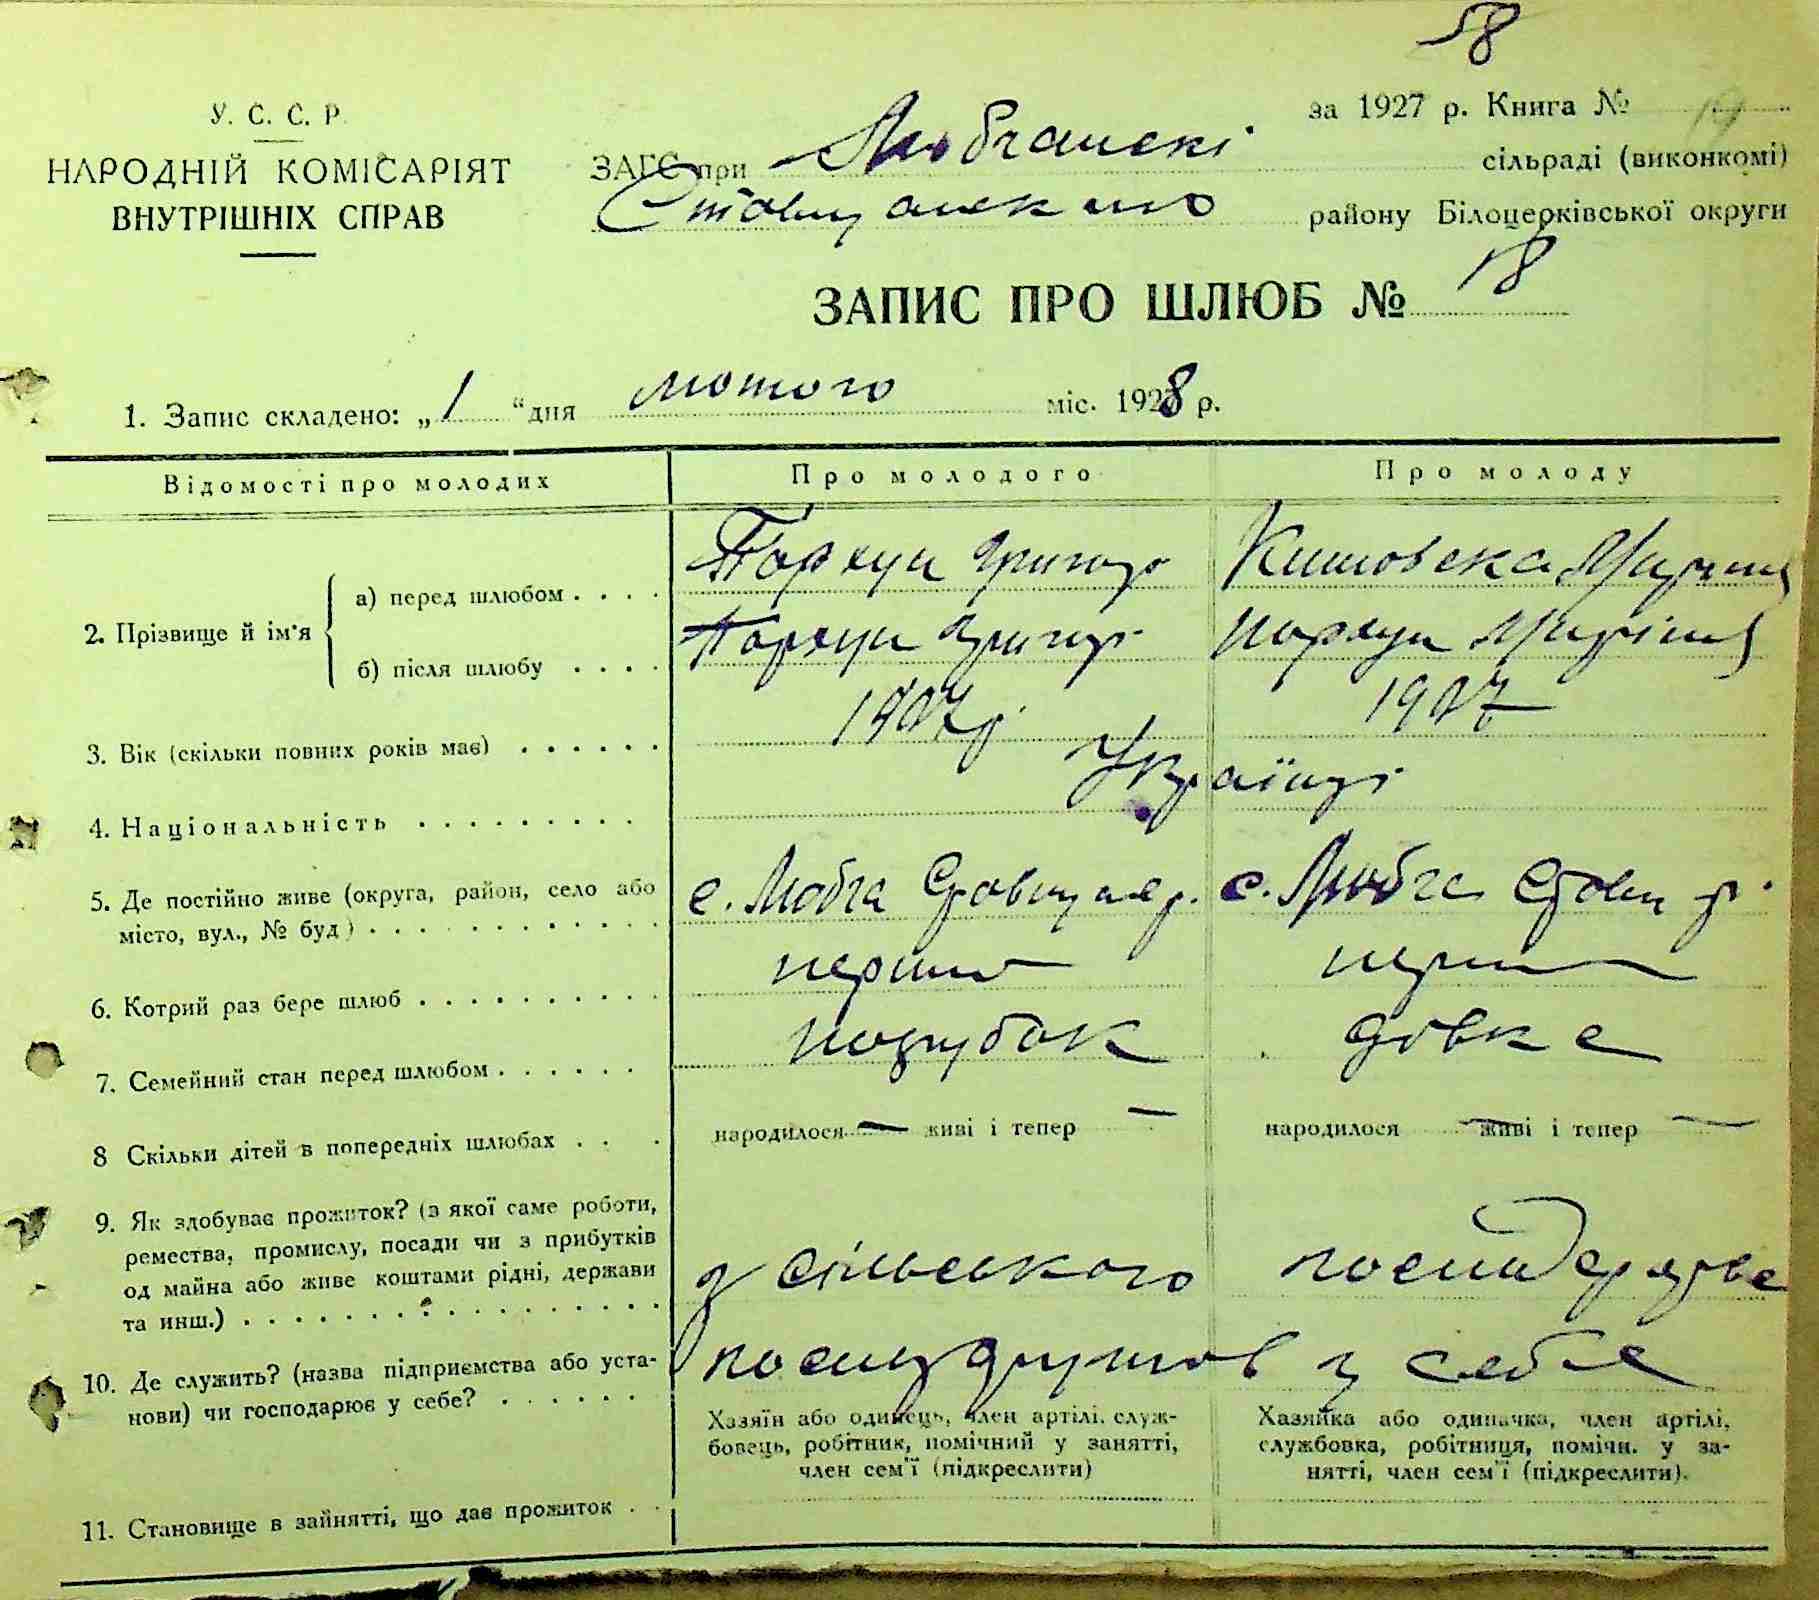 58
У. С. С. Р.
НАРОДНІЙ КОМІСАРІЯТ
ВНУТРІШНІХ СПРАВ
за 1927 р. Книга № 19
ЗАГС при Любчанскі сільраді (виконкомі)
району Білоцерківської округи
ЗАПИС ПРО ШЛЮБ № 18
1. Запис складено: „1“ дня лютого міс. 1928 р.
Відомості про молодих
Про молодого
Про молоду
2. Прізвище й ім'я
а) перед шлюбом . . . .
Пархун Григор
б) після шлюбу . . . .
Пархун Григор
Пархун
3. Вік (скільки повних років має) . . . . . .
1907 р.
1907
4. Національність . . . . . . . . .
Українці
5. Де постійно живе (округа, район, село або
місто, вул., № буд.) . . . . . . . . . . . .
с. Любча
с. Любча
6. Котрий раз бере шлюб . . . . . . . . . .
перший
перший
7. Семейний стан перед шлюбом . . . . . .
парубок
дівка
8 Скільки дітей в попередніх шлюбах . . .
народилося — живі і тепер —
народилося — живі і тепер —
9. Як здобуває прожиток? (з якої саме роботи,
ремества, промислу, посади чи з прибутків
од майна або живе коштами рідні, держави
та инш.) . . . . . . . . . . . . . . .
з сільського
10. Де служить? (назва підприємства або уста-
нови) чи господарює у себе? . . . . . .
у себе
Хазяїн або одинець, член артілі, служ-
бовець, робітник, помічний у занятті,
член сем'ї (підкреслити)
Хазяйка або одиначка, член артілі,
службовка, робітниця, помічн. у за-
нятті, член сем'ї (підкреслити).
11. Становище в зайнятті, що дає прожиток . .